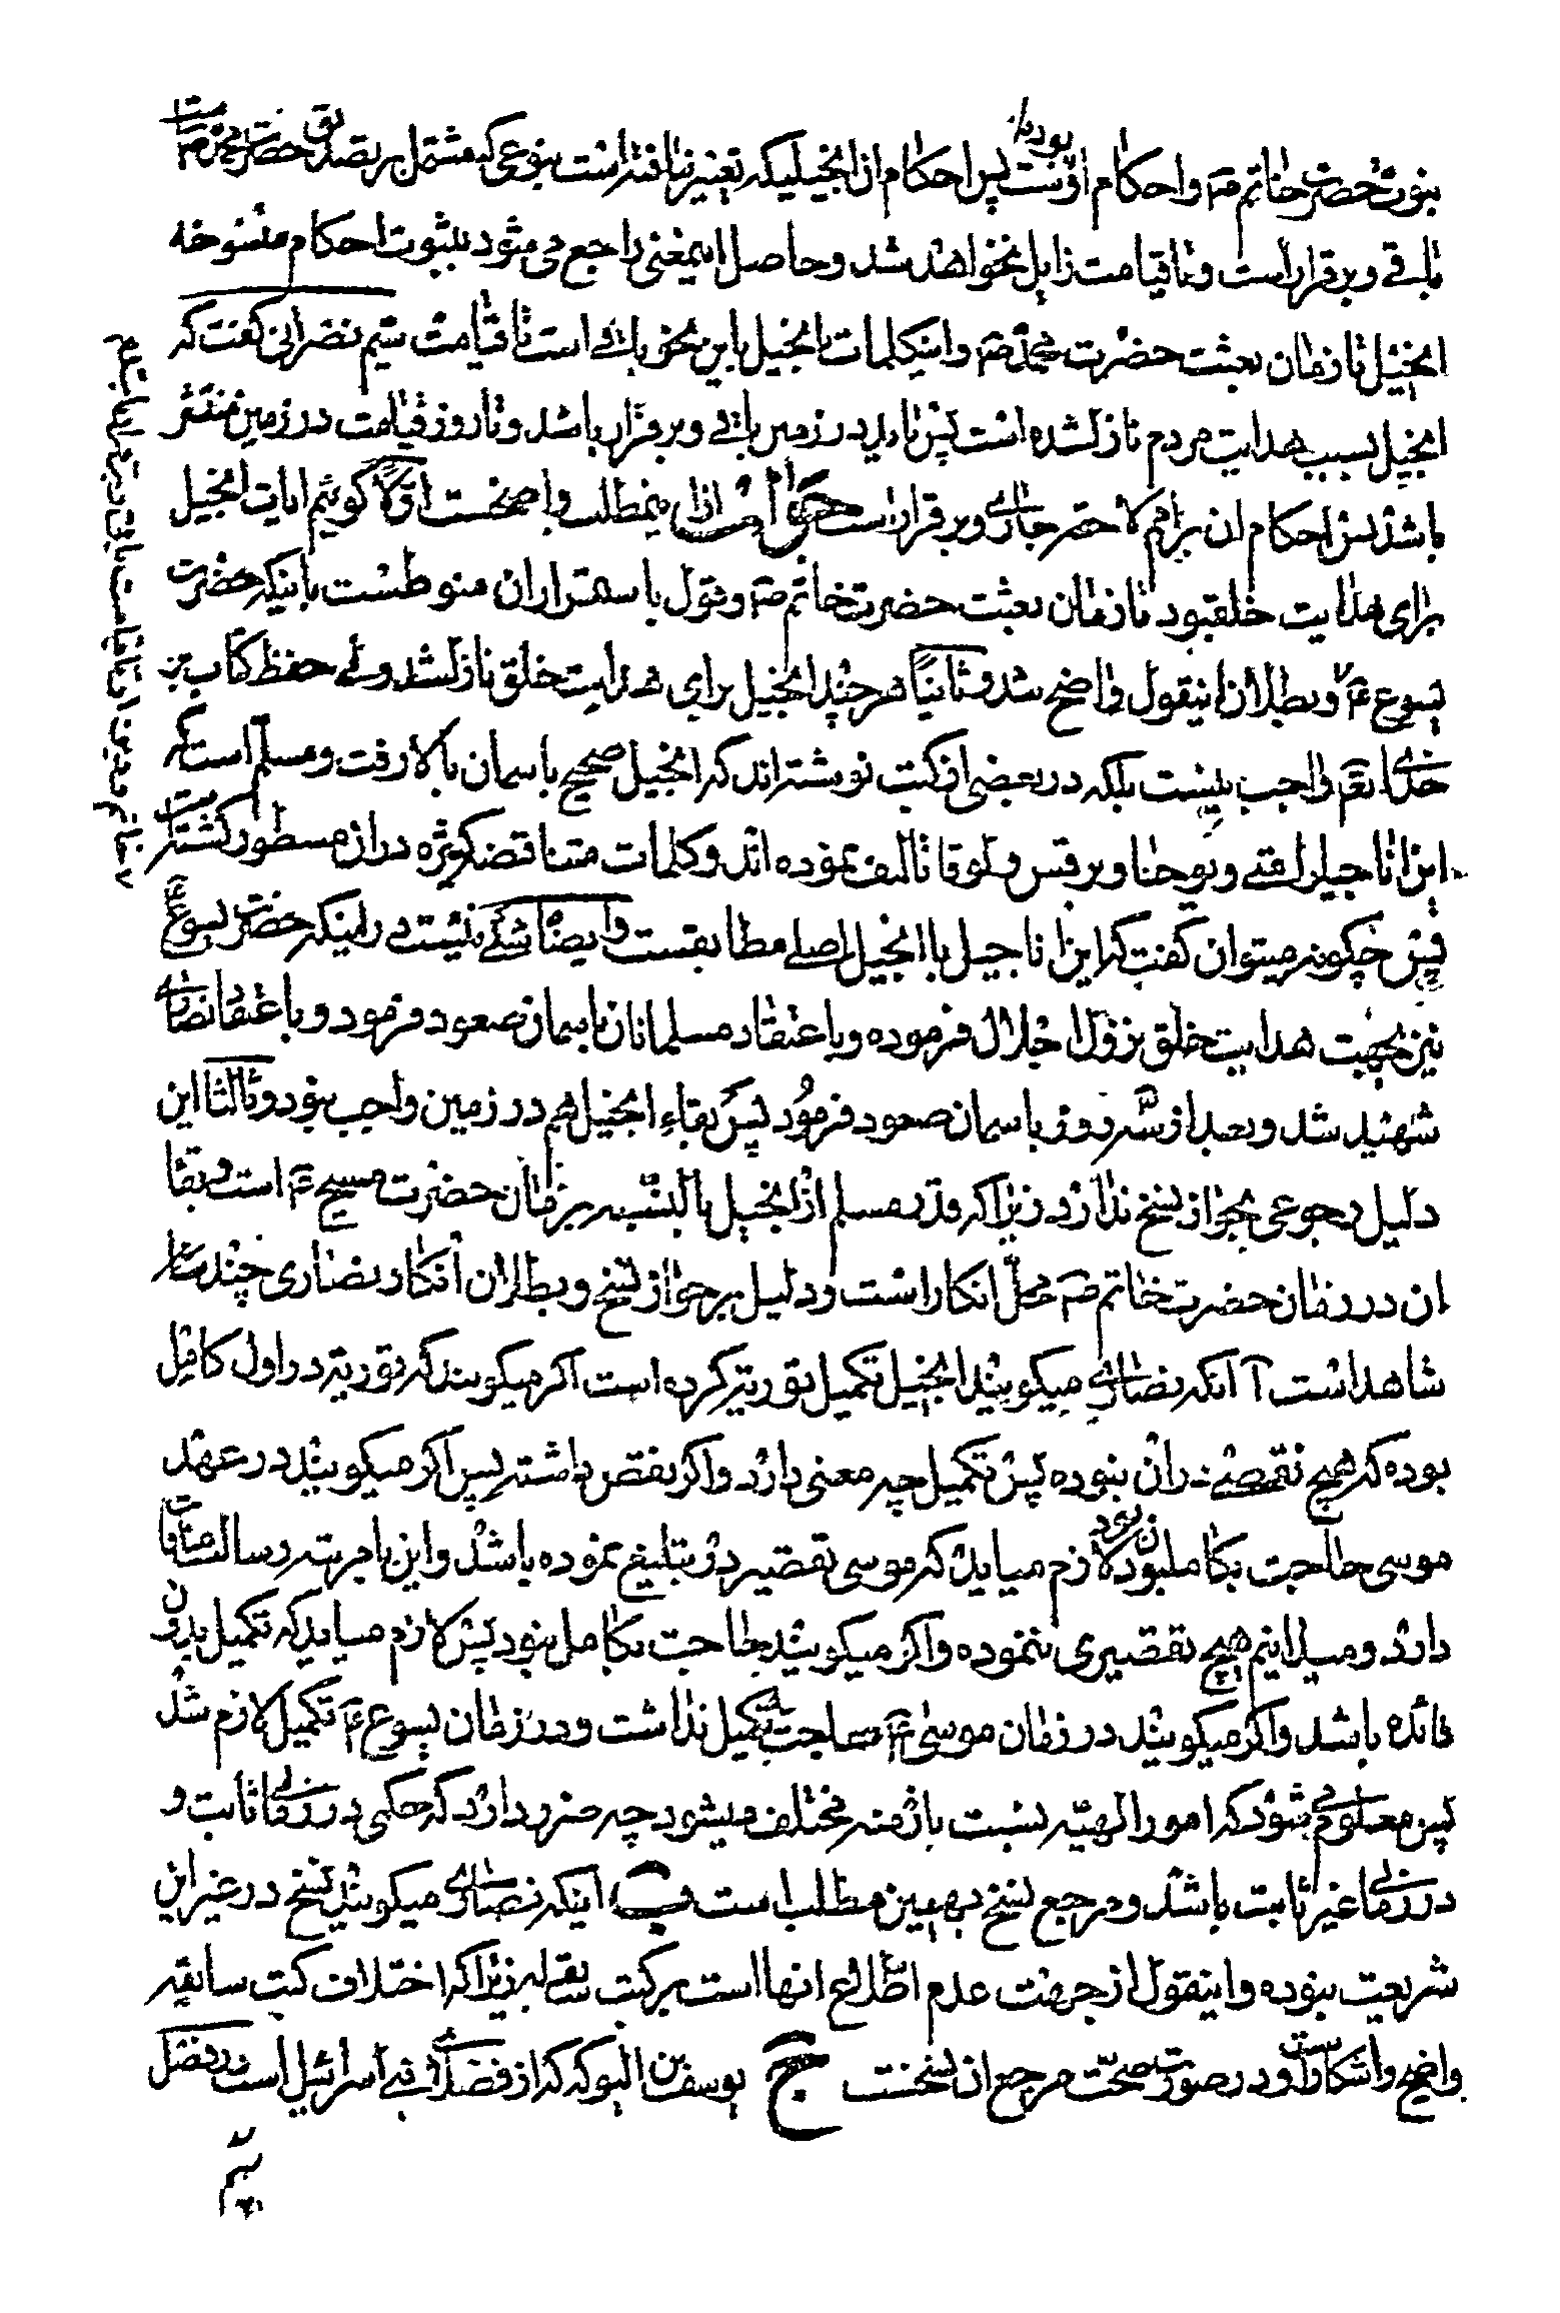 بنبوت حضرت خاتم ص و احکام اوست پس احکام آن انجیلیکه تغییر نیافته است بنوعی که مشتمل بر تصدیق حضرت محمد ص است
باقی و برقرار است و تا قیامت زایل نخواهد شد و حاصل اینمعنی راجع می شود بثبوت احکام منسوخه
انجیل تا زمان بعثت حضرت محمد ص و اینکلمات با انجیل باین نحو باقی است تا قیامت سیم نصرانی گفت که
انجیل بسبب هدایت مردم نازلشده است پس باید در زمین باقی و برقرار باشد و تا روز قیامت در زمین منتشر
باشد پس احکام آن برامم لاحقه جاری و برقرار است جواب از اینمطلب واضحست اوّلاً گوئیم ایات انجیل
برای هدایت خلقبود تا زمان بعثت حضرت خاتم ص و قول باستمرار آن منوطست باینکه حضرت
یسوع ع و بطلان اینقول واضح شد و ثانیاً هر چند انجیل برای هدایت خلق نازلشد ولی حفظ کتاب بر
خدای تعم واجب نیست بلکه در بعضی از کتب نوشته اند که انجیل صحیح باسمان بالا رفت و مسلّم است که
این اناجیل را متی و یوحنا و مرقس و لوقا تالیف نموده اند و کلمات متناقضه کثیره در آن مسطور گشته است
پس چگونه میتوان گفت که این اناجیل با انجیل اصلی مطابقست و ایضاً شکی نیست در اینکه حضرت یسوع ع
نیز بجهت هدایت خلق نزول اجلال فرموده و باعتقاد مسلمانان باسمان صعود فرمود و باعتقاد نصاری
شهید شد و بعد از سه روز باسمان صعود فرمود پس بقاء انجیل هم در زمین واجب نبود و ثالثا این
دلیل رجوعی بجواز نسخ ندارد زیرا که قدر مسلم از انجیل بالنسبه بزمان حضرت مسیح ع است و بقا
ان در زمان حضرت خاتم ص محلّ انکار است و دلیل بر جواز نسخ و بطلان انکار نصاری چند
شاهد است آ آنکه نصاری میگویند انجیل تکمیل توریة کرده است اگر میگویند که توریة در اول کامل
بوده که هیچ نقصی در آن نبوده پس تکمیل چه معنی دارد و اگر نقص داشته پس اگر میگویند در عهد
موسی حاجت بکامل نبوده لازم میاید که موسی تقصیر در تبلیغ نموده باشد و این با مرتبه رسالت منافات
دارد و میدانیم هیچ تقصیری ننموده و اگر میگویند حاجت بکامل نبود پس لازم میاید که تکمیل بدون
فائده باشد و اگر میگویند در زمان موسی ع حاجت بتکمیل نداشت و در زمان یسوع ع تکمیل لازم شد
پس معلوم میشود که امور الهیّه نسبت بازمنه مختلف میشود چه ضرر دارد که حکمی در زمانی ثابت و
در زمانی غیر ثابت باشد و مرجع نسخ بهمین مطلب است ب اینکه نصاری میگویند نسخ در غیر این
شریعت نبوده و اینقول از جهت عدم اطّلاع انها است بر کتب سابقه زیرا که اختلاف کتب سابقه
واضح و اشکار است و در صورت صحّت مرجع ان نسخست ج یوسف بن البوکه که از فضلای بنی اسرائیل است در فصل